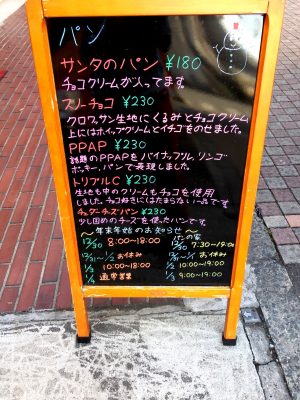 パン
サンタのパン ¥180
チョコクリームが入ってます。
スノーチョコ ¥230
クロワッサン生地にくるみとチョコクリーム
上にはホイップクリームとイチゴをのせました。
PPAP ¥230
話題のPPAPをパイナップル、リンゴ
ポッキー、パンで表現しました。
トリプルC ¥230
生地も中のクリームもチョコを使用
しました。チョコ好きにはたまらない一品です。
チェダーチーズパン ¥230
少し固めのチーズを使ったパンです。
～年末年始のお知らせ～
12/30 8:00～18:00
12/31～1/2 お休み
1/3 10:00～18:00
1/4 通常営業
12/30 7:30～19:00
12/31～1/1 お休み
1/2 10:00～19:00
1/3 9:00～19:00